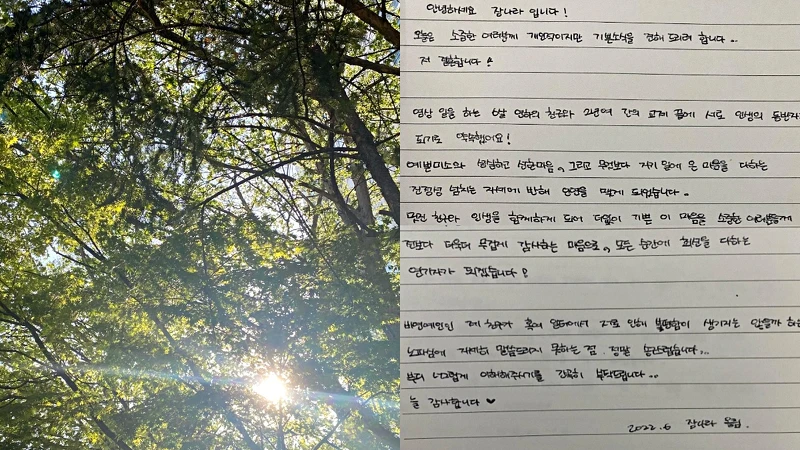 안녕하세요 장나라 입니다!
오늘은 소중한 여러분께 개인적이지만 기쁜소식을 전해 드리려 합니다..
저 결혼합니다!
영상 일을 하는 6살 연하의 친구와 2년여 간의 교제 끝에 서로 인생의 동반자
되기로 약속했어요!
예쁜미소와 성실하고 선한마음, 그리고 무엇보다 자기 일에 온 마음을 다하는
진정성 넘치는 자세에 반해 인연을 맺게 되었습니다..
무언 인생을 함께하게 되어 더없이 기쁜 이 마음을 소중한 여러분들께
전보다 더욱더 무겁게 감사하는 마음으로, 모든 순간에 최선을 다하는
연기자가 되겠습니다!
비연예인인 제 친구가 혹여 일터에서 저로 인해 불편함이 생기지는 않을까 하는
노파심에 자세히 말씀드리지 못하는 점 정말 송구스럽습니다...
부디 너그럽게 이해해주시기를 간곡히 부탁드립니다..
늘 감사합니다 ♥
2022.6 장나라 올림.